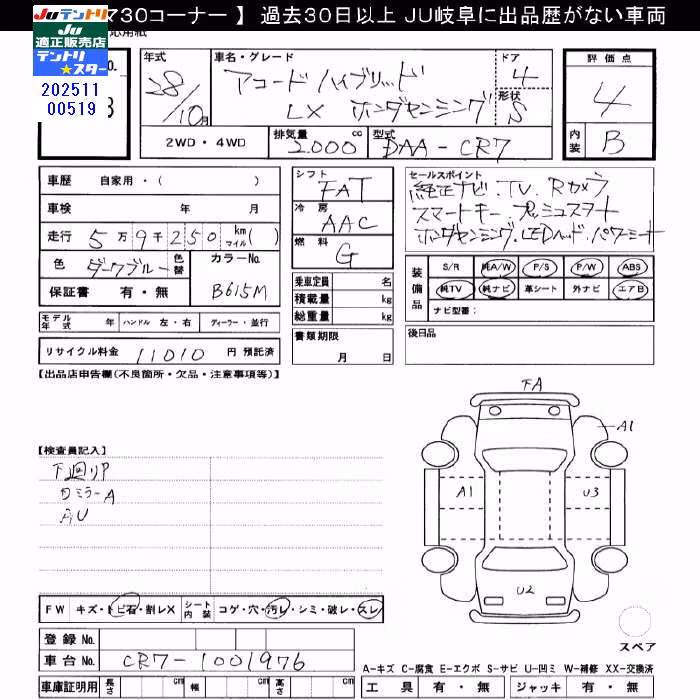 730コーナー 】 過去30日以上 JU岐阜に出品歴がない車両
JUテントリ JU
JU
適正販売店
テントリ
★スター
応用紙
202511
00519
No.
3
年式
28/10月
車名・グレード
アコードハイブリッド
LX ホンダセンシング
ドア
4
形状
S
評価点
4
内装
B
2WD・4WD
排気量
2000 cc
型式
DAA-CR7
車歴 自家用・( )
車検 年 月
走行 5万9千250 km マイル( )
色 ダークブルー 色替
カラーNo.
B615M
保証書 有・無
シフト
FAT
冷房
AAC
燃料
G
乗車定員 名
積載量 kg
総重量 kg
セールスポイント
純正ナビ.TV.Rカメラ
スマートキー.プッシュスタート
ホンダセンシング.LEDヘッド.パワーシート
装備品
S/R 純A/W P/S P/W ABS
純TV 純ナビ 革シート 外ナビ エアB
ナビ型番:
モデル年式 年 ハンドル 左・右 ディーラー・並行
リサイクル料金 11010 円 預託済
書類期限
月 日
後日品
【出品店申告欄(不良箇所・欠品・注意事項等)】
FA
A1
A1
U3
U2
【検査員記入】
下廻りP
ミラーA
AU
FW キズ・トビ石・割レX シート内装 コゲ・穴・汚レ・シミ・破レ・スレ
登録No.
車台No. CR7-1001976
車庫証明用 長さ cm 幅 cm 高さ cm
スペア
A-キズ C-腐食 E-エクボ S-サビ U-凹ミ W-補修 XX-交換済
工具 有・無 ジャッキ 有・無